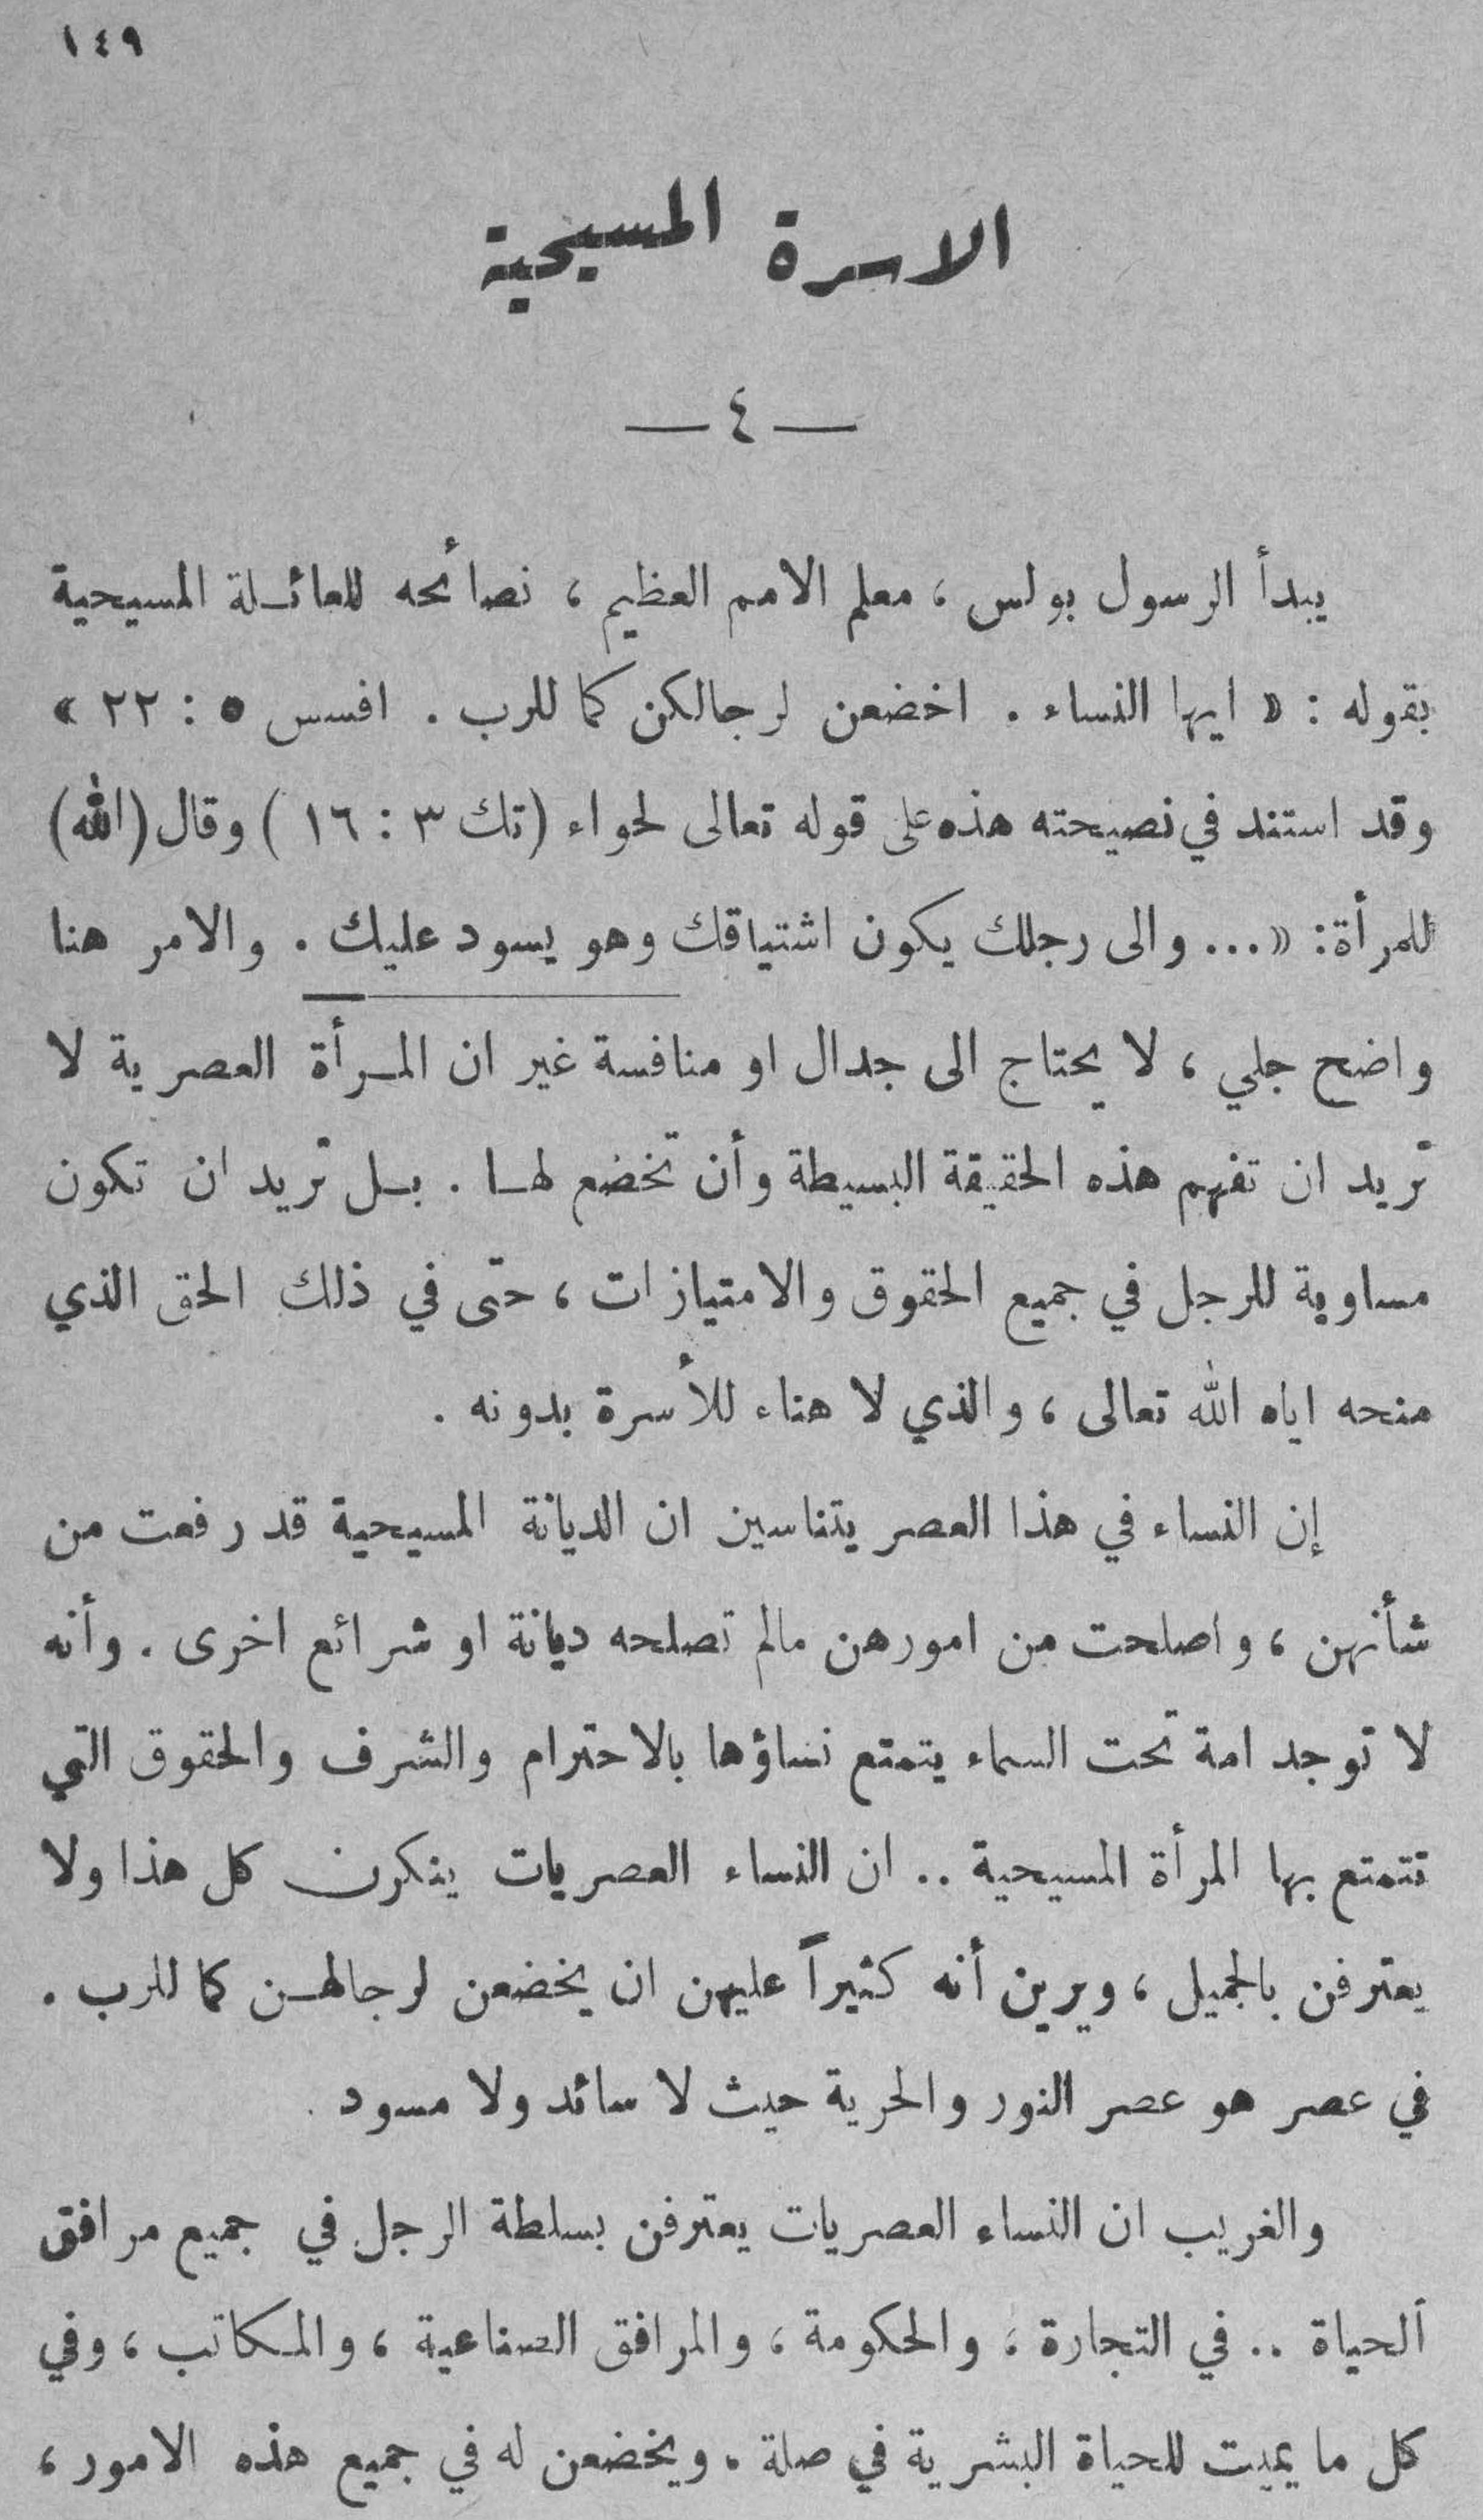 ١٤٩
الاسرة المسيحية
— ٤ —
يبدأ الرسول بولس ، معلم الامم العظيم ، نصائحه للعائلة المسيحية
بقوله : « ايها النساء . اخضعن لرجالكن كما للرب . افسس ٥ : ٢٢ »
وقد استند في نصيحته هذه على قوله تعالى لحواء (تك ٣ : ١٦ ) وقال (الله)
للمرأة: «... والى رجلك يكون اشتياقك وهو يسود عليك . والامر هنا
واضح جلي ، لا يحتاج الى جدال او منافسة غير ان المرأة العصرية لا
تريد ان تفهم هذه الحقيقة البسيطة وأن تخضع لها . بل تريد ان تكون
مساوية للرجل في جميع الحقوق والامتيازات ، حتى في ذلك الحق الذي
منحه اياه الله تعالى ، والذي لا هناء للأسرة بدونه .
إن النساء في هذا العصر يتناسين ان الديانة المسيحية قد رفعت من
شأنهن ، واصلحت من امورهن مالم تصلحه ديانة او شرائع اخرى . وأنه
لا توجد امة تحت السماء يتمتع نساؤها بالاحترام والشرف والحقوق التي
تتمتع بها المرأة المسيحية .. ان النساء العصريات ينكرن كل هذا ولا
يعترفن بالجميل ، ويرين أنه كثيراً عليهن ان يخضعن لرجالهن كما للرب .
في عصر هو عصر النور والحرية حيث لا سائد ولا مسود .
والغريب ان النساء العصريات يعترفن بسلطة الرجل في جميع مرافق
الحياة .. في التجارة ، والحكومة ، والمرافق الصناعية ، والمكاتب ، وفي
كل ما يميت للحياة البشرية في صلة . ويخضعن له في جميع هذه الامور ،